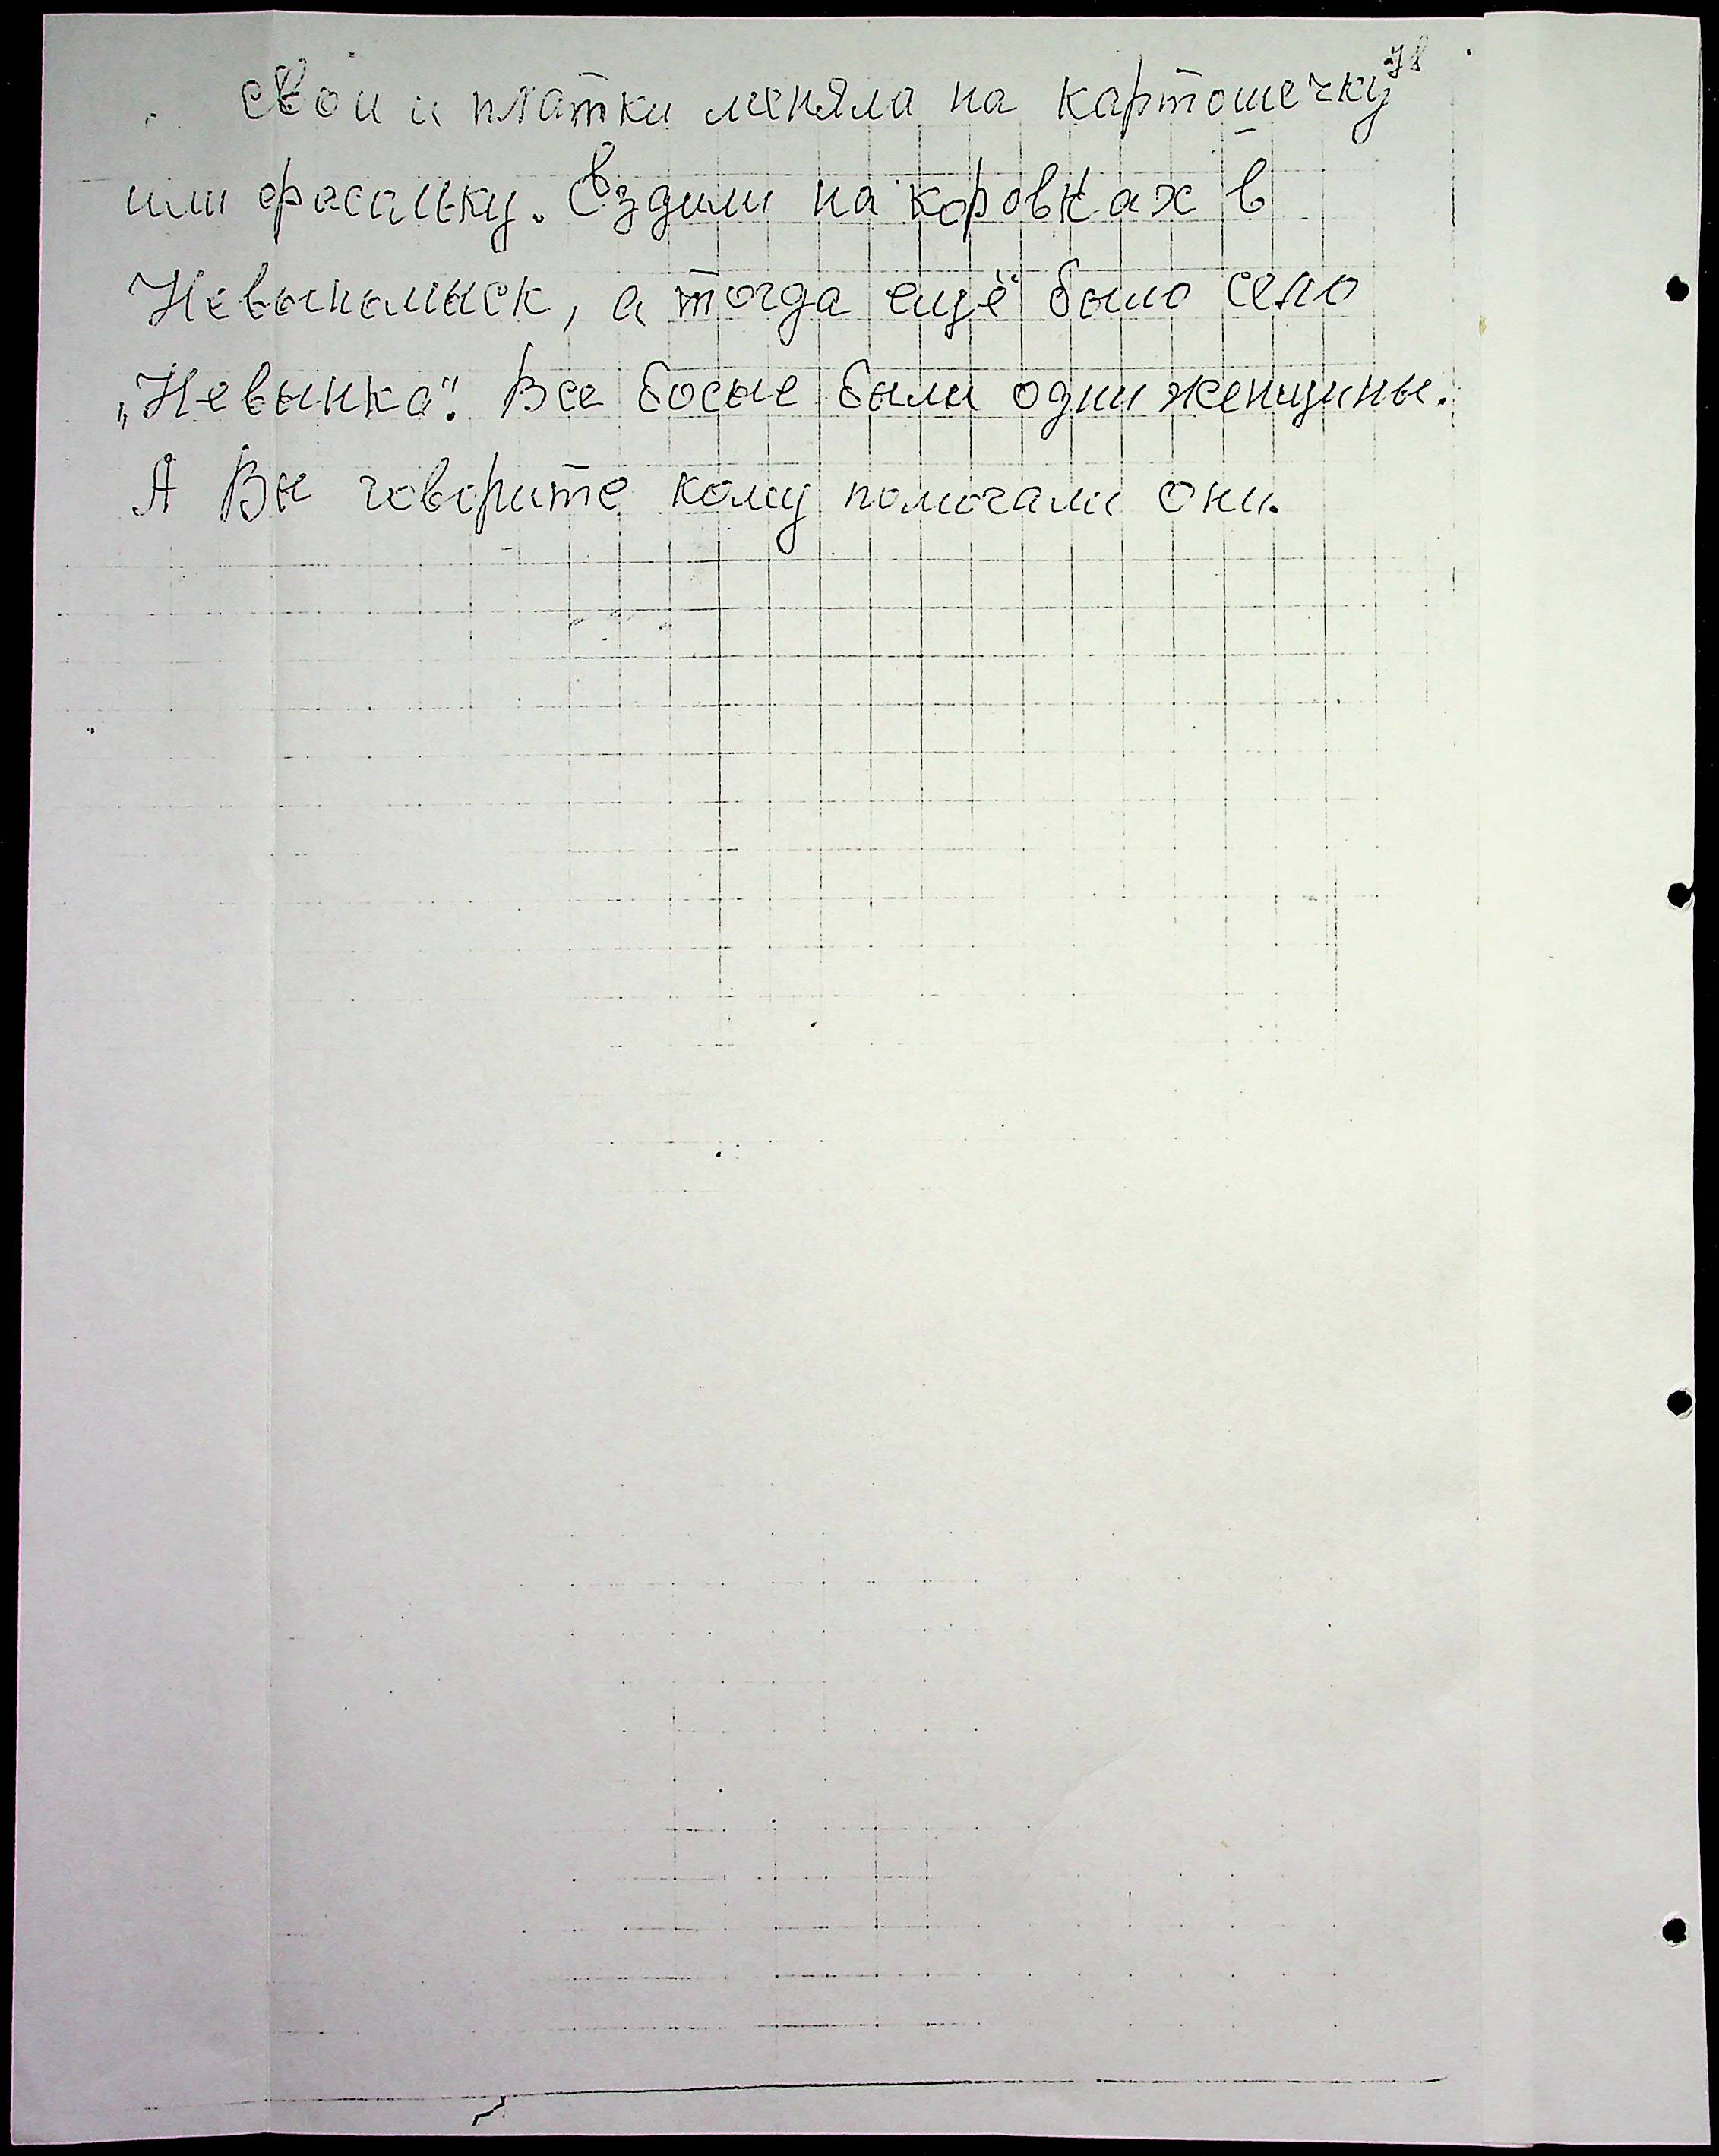 свои и платки меняла на картошечку
или фасальку. Ездили на коровках в
Невыномынск, а тогда ещё было село
„Невынка". Все босые были одни женщины.
А Вы говорите кому помогали они.